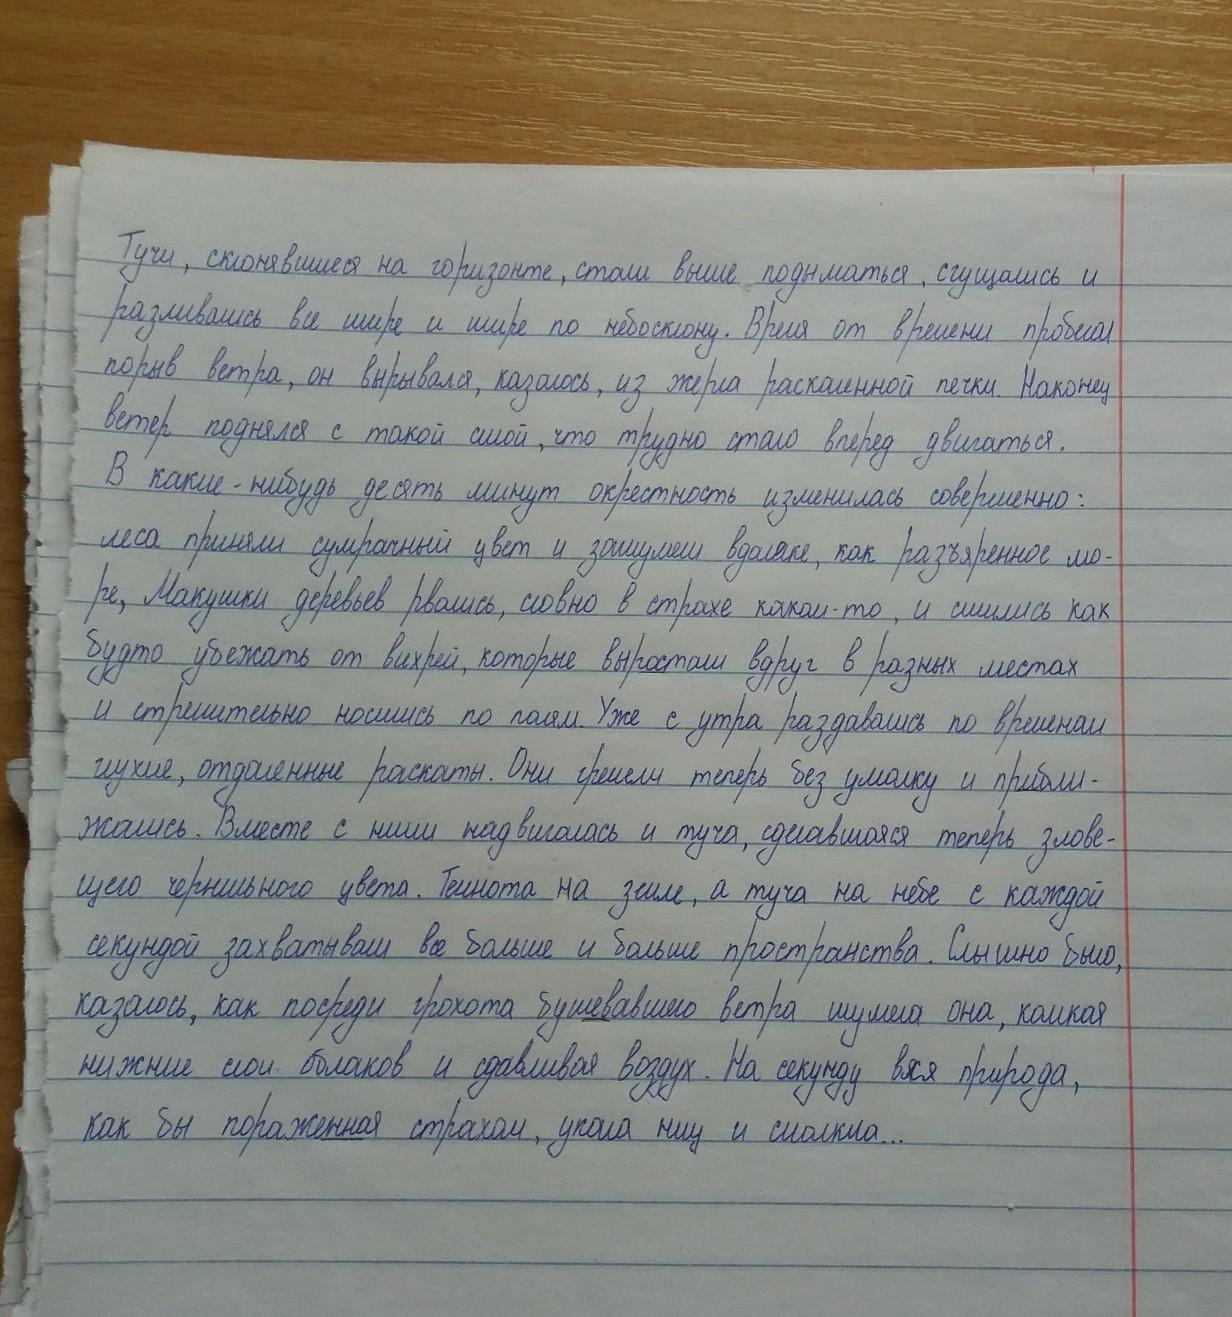 Тучи, склонявшиеся на горизонте, стали выше подыматься, сгущались и
разливались все шире и шире по небосклону. Время от времени пробегал
порыв ветра, он вырывался, казалось, из жерла раскаленной печки. Наконец
ветер поднялся с такой силой, что трудно стало вперед двигаться.
В какие-нибудь десять минут окрестность изменилась совершенно:
леса приняли сумрачный цвет и зашумели вдалеке, как разъяренное мо-
ре, Макушки деревьев рвались, словно в страхе каком-то, и силились как
будто убежать от вихрей, которые выростали вдруг в разных местах
и стремительно носились по полям. Уже с утра раздавались по временам
глухие, отдаленные раскаты. Они гремели теперь без умолку и прибли-
жались. Вместе с ними надвигалась и туча, сделавшаяся теперь злове-
щего чернильного цвета. Темнота на земле, а туча на небе с каждой
секундой захватывали все больше и больше пространства. Слышно было,
казалось, как посреди грохота бушевавшего ветра шумела она, комкая
нижние слои облаков и сдавливая воздух. На секунду вся природа,
как бы пораженная страхом, упала ниц и смолкла...